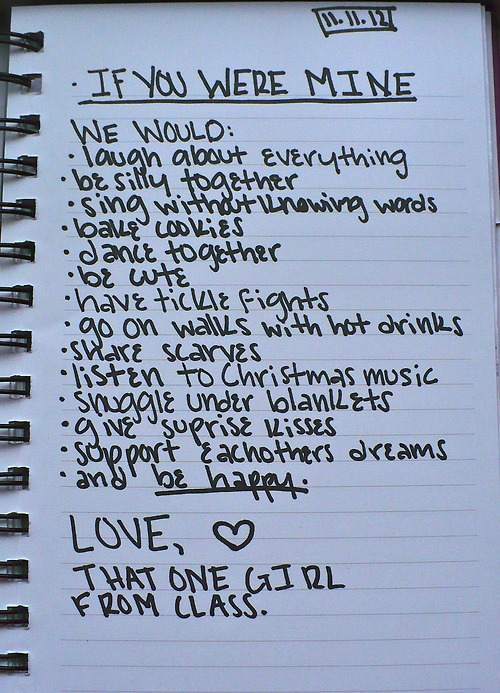 11.11.12
· IF YOU WERE MINE
WE WOULD:
· laugh about everything
· be silly together
· sing without knowing words
· bake cookies
· dance together
· be cute
· have tickle fights
· go on walks with hot drinks
· share scarves
· listen to Christmas music
· snuggle under blankets
· give suprise kisses
· support eachothers dreams
· and be happy.
LOVE, ♡
THAT ONE GIRL
FROM CLASS.